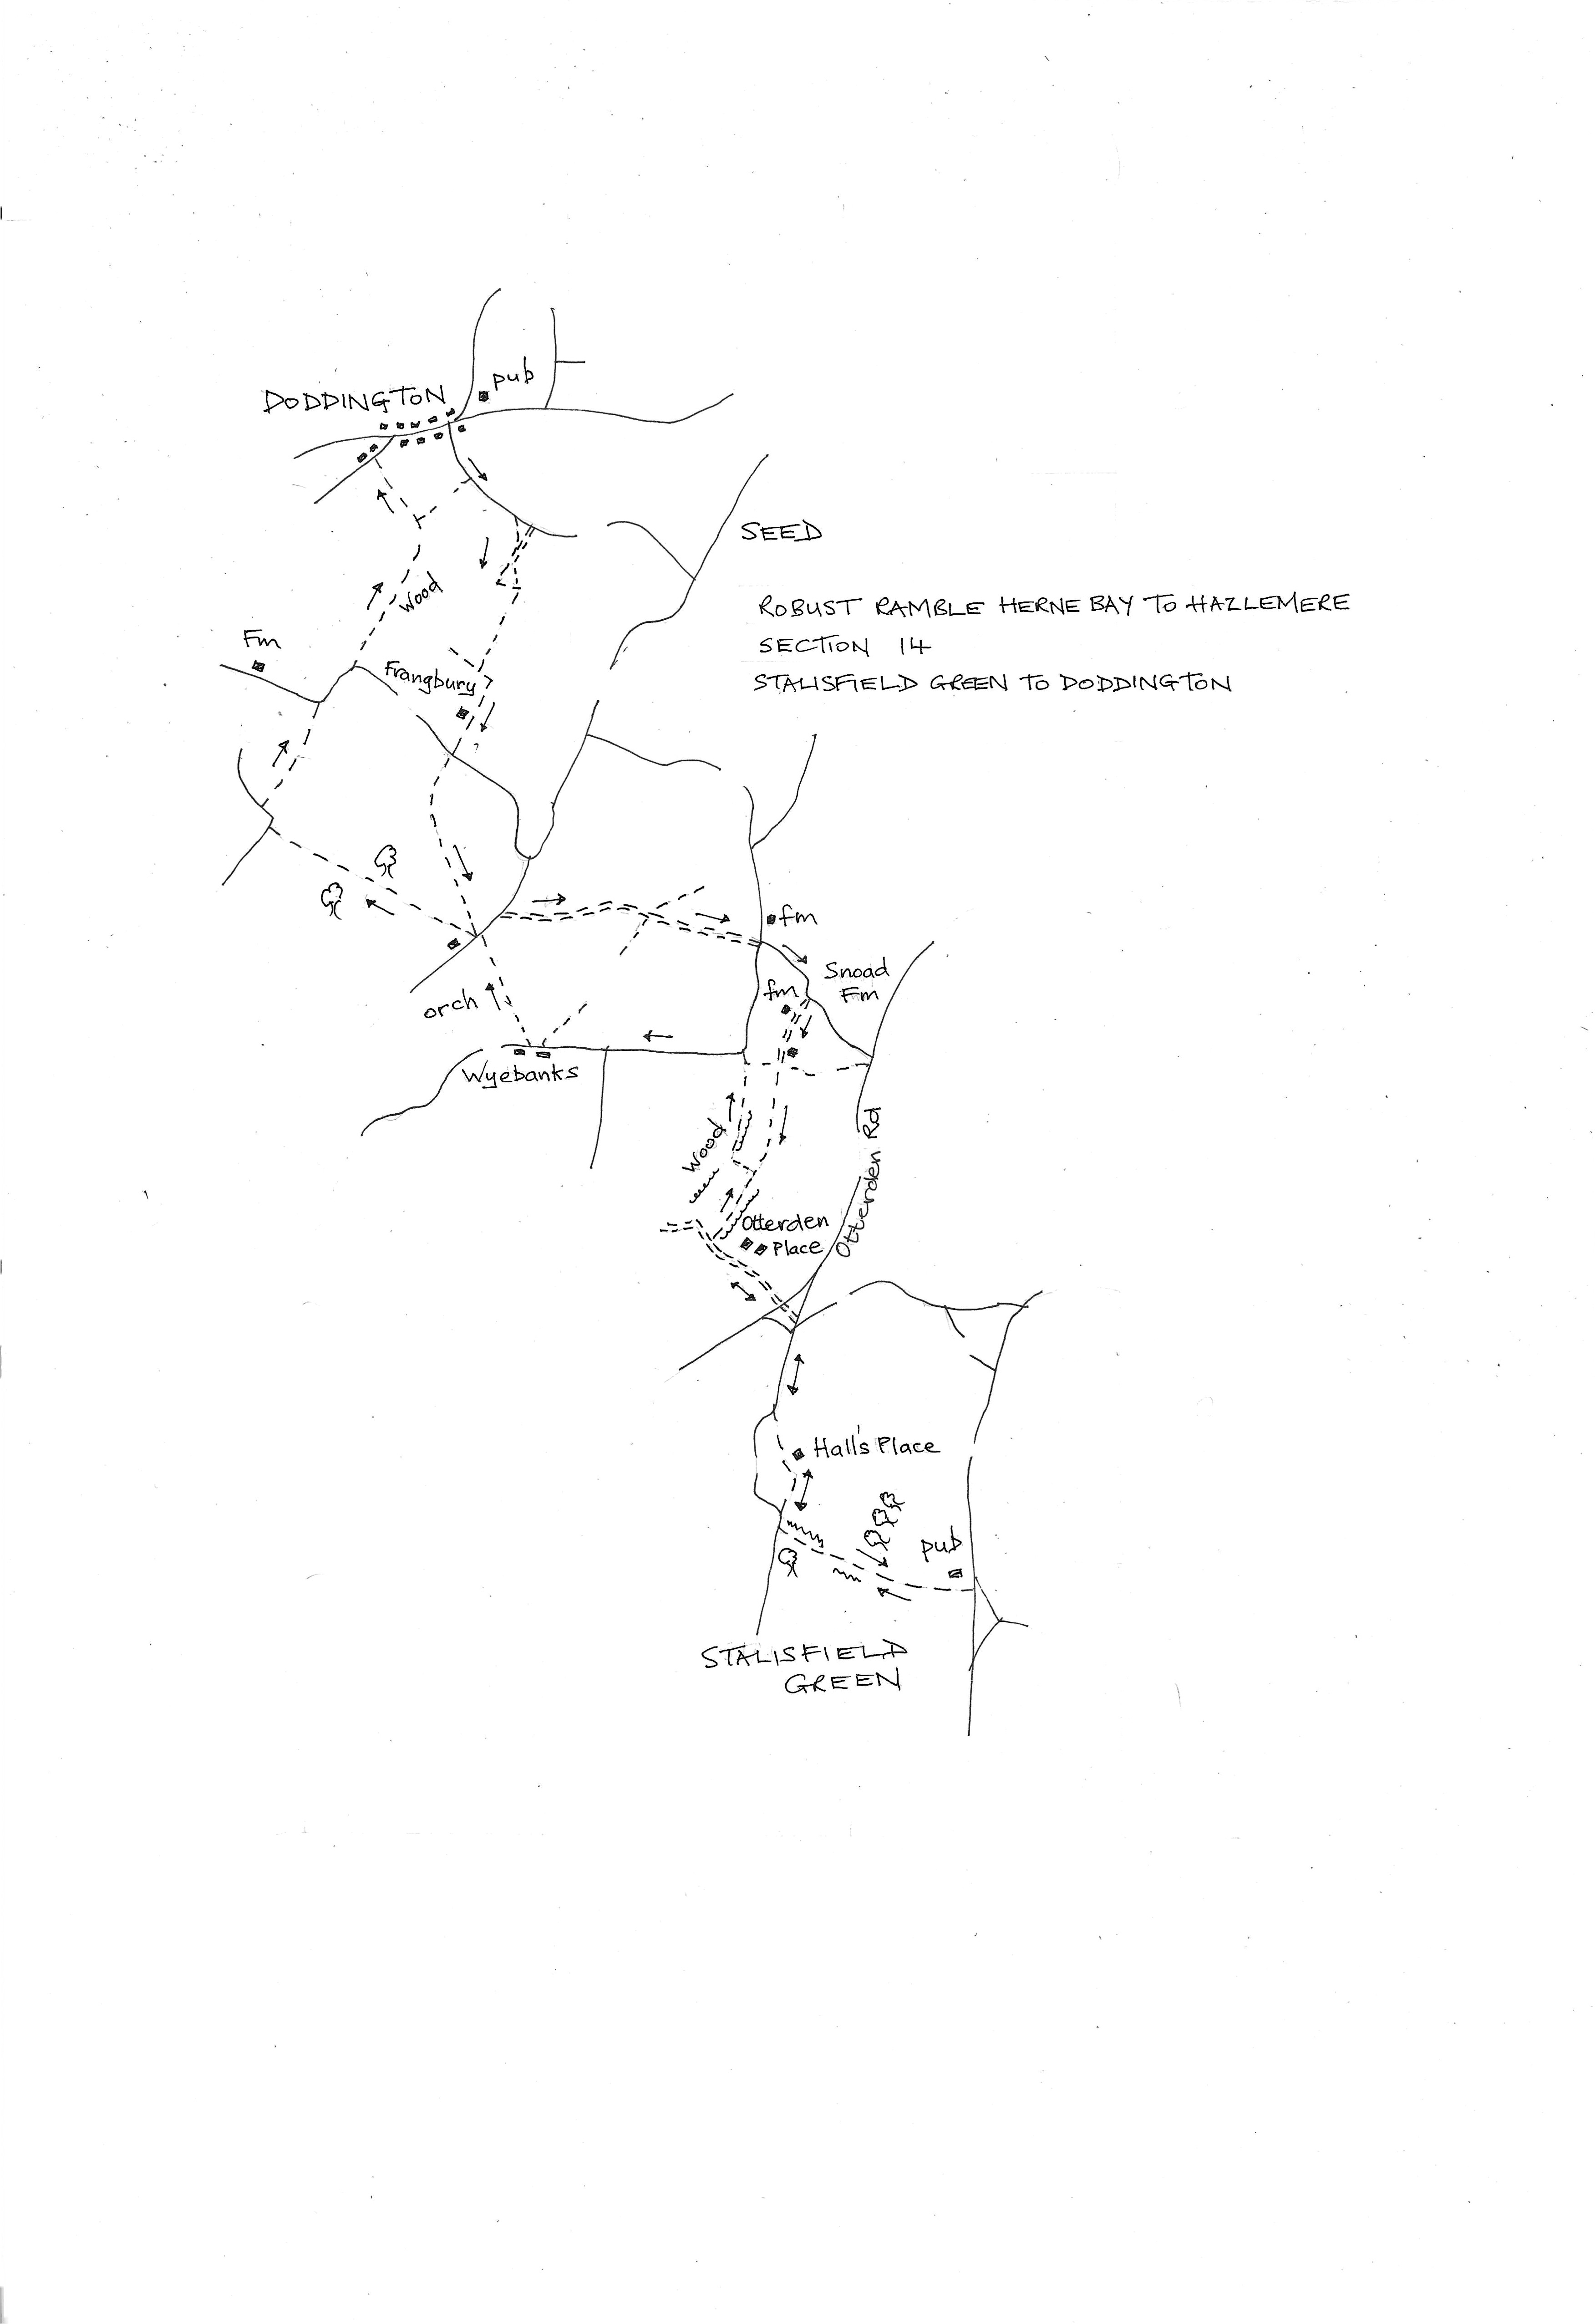 pub
DODDINGTON
SEED
wood
ROBUST RAMBLE HERNE BAY TO HAZLEMERE
SECTION 14
STALISFIELD GREEN TO DODDINGTON
Fm
Frangbury
fm
Snoad
Fm
fm
orch
Wyebanks
Wood
Otterden Rd
Otterden
Place
Hall's Place
pub
STALISFIELD
GREEN